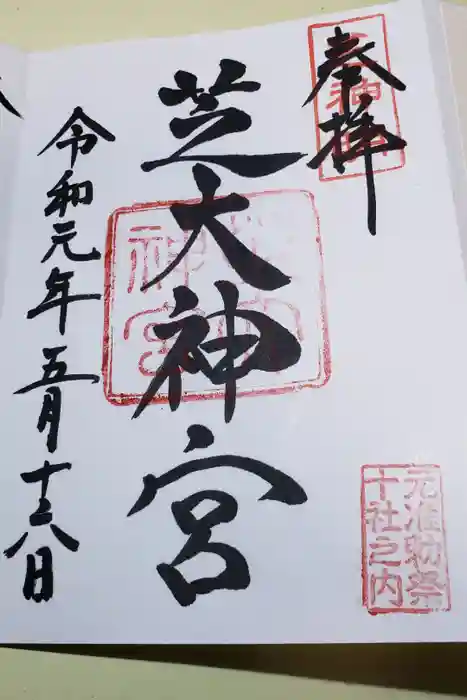 奉拝
芝大神宮
令和元年五月十八日
元准勅祭
十社之内